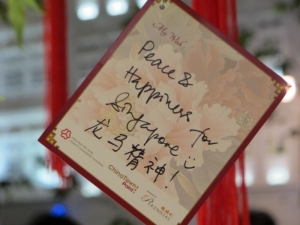 My Wish
Peace &
Happiness for
Singapore
龙马精神!
Chinatown
Point